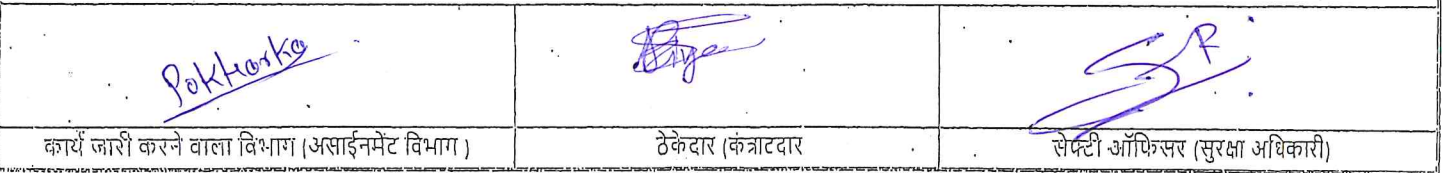 Pokharkar
कार्य जारी करने वाला विभाग (असाईनमेंट विभाग )
ठेकेदार (कंत्राटदार
सेफ्टी ऑफिसर (सुरक्षा अधिकारी)